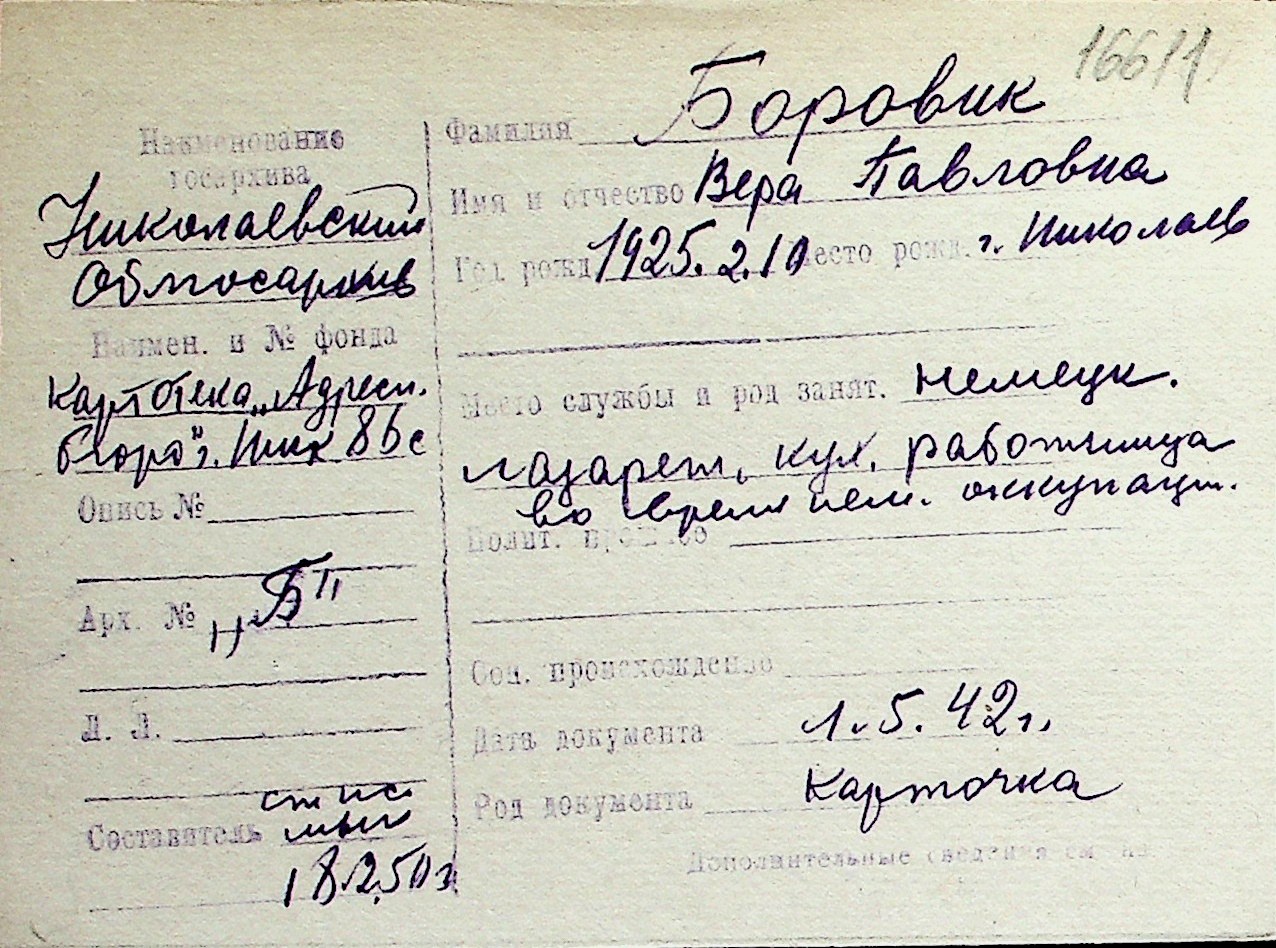 166/1
Наименование
госархива
Николаевский
Облгосархив
Наимен. и № фонда
Картотека „Адресн.
бюро" г. Ник 86с
Опись №
Арх. № „Б"
Л. Л.
Составитель
18.2.50г
Фамилия Боровик
Имя и отчество Вера Павловна
Год рожд. 1925.2.10 Место рожд. г. Николаев
Место службы и род занят. немецк.
лазарет, кух. работница
во время нем. оккупац.
Полит. прошлое
Соц. происхождение
Дата документа 1.5.42г.
Род документа Карточка
Дополнительные сведения см на